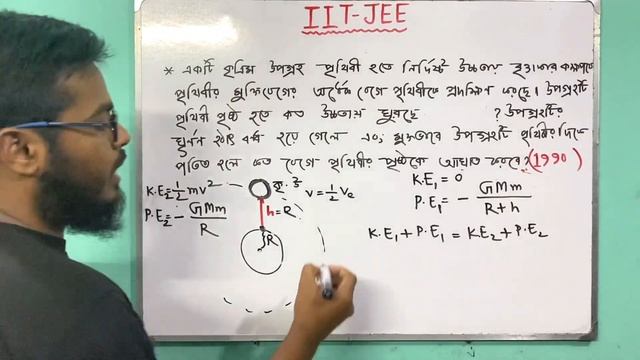 IIT-JEE
* একটি কৃত্রিম উপগ্রহ পৃথিবী হতে নির্দিষ্ট উচ্চতায় বৃত্তাকার কক্ষপথে
পৃথিবীর মুক্তিবেগের অর্ধেক বেগে পৃথিবীকে প্রদক্ষিণ করছে। উপগ্রহটি
পৃথিবী পৃষ্ঠ হতে কত উচ্চতায় ঘুরছে ? উপগ্রহটির
ঘূর্ণন হয়ে গেলে এবং মুক্তভাবে উপগ্রহটি পৃথিবীর দিকে
পতিত হলে কত বেগে পৃথিবীর পৃষ্ঠকে আঘাত করবে? (1990)
K.E₂ = ½ mv²
P.E₂ = - GMm/R
কৃ. উ
v = ½ vₑ
h = R
R
K.E₁ = 0
P.E₁ = - GMm/R+h
K.E₁ + P.E₁ = K.E₂ + P.E₂